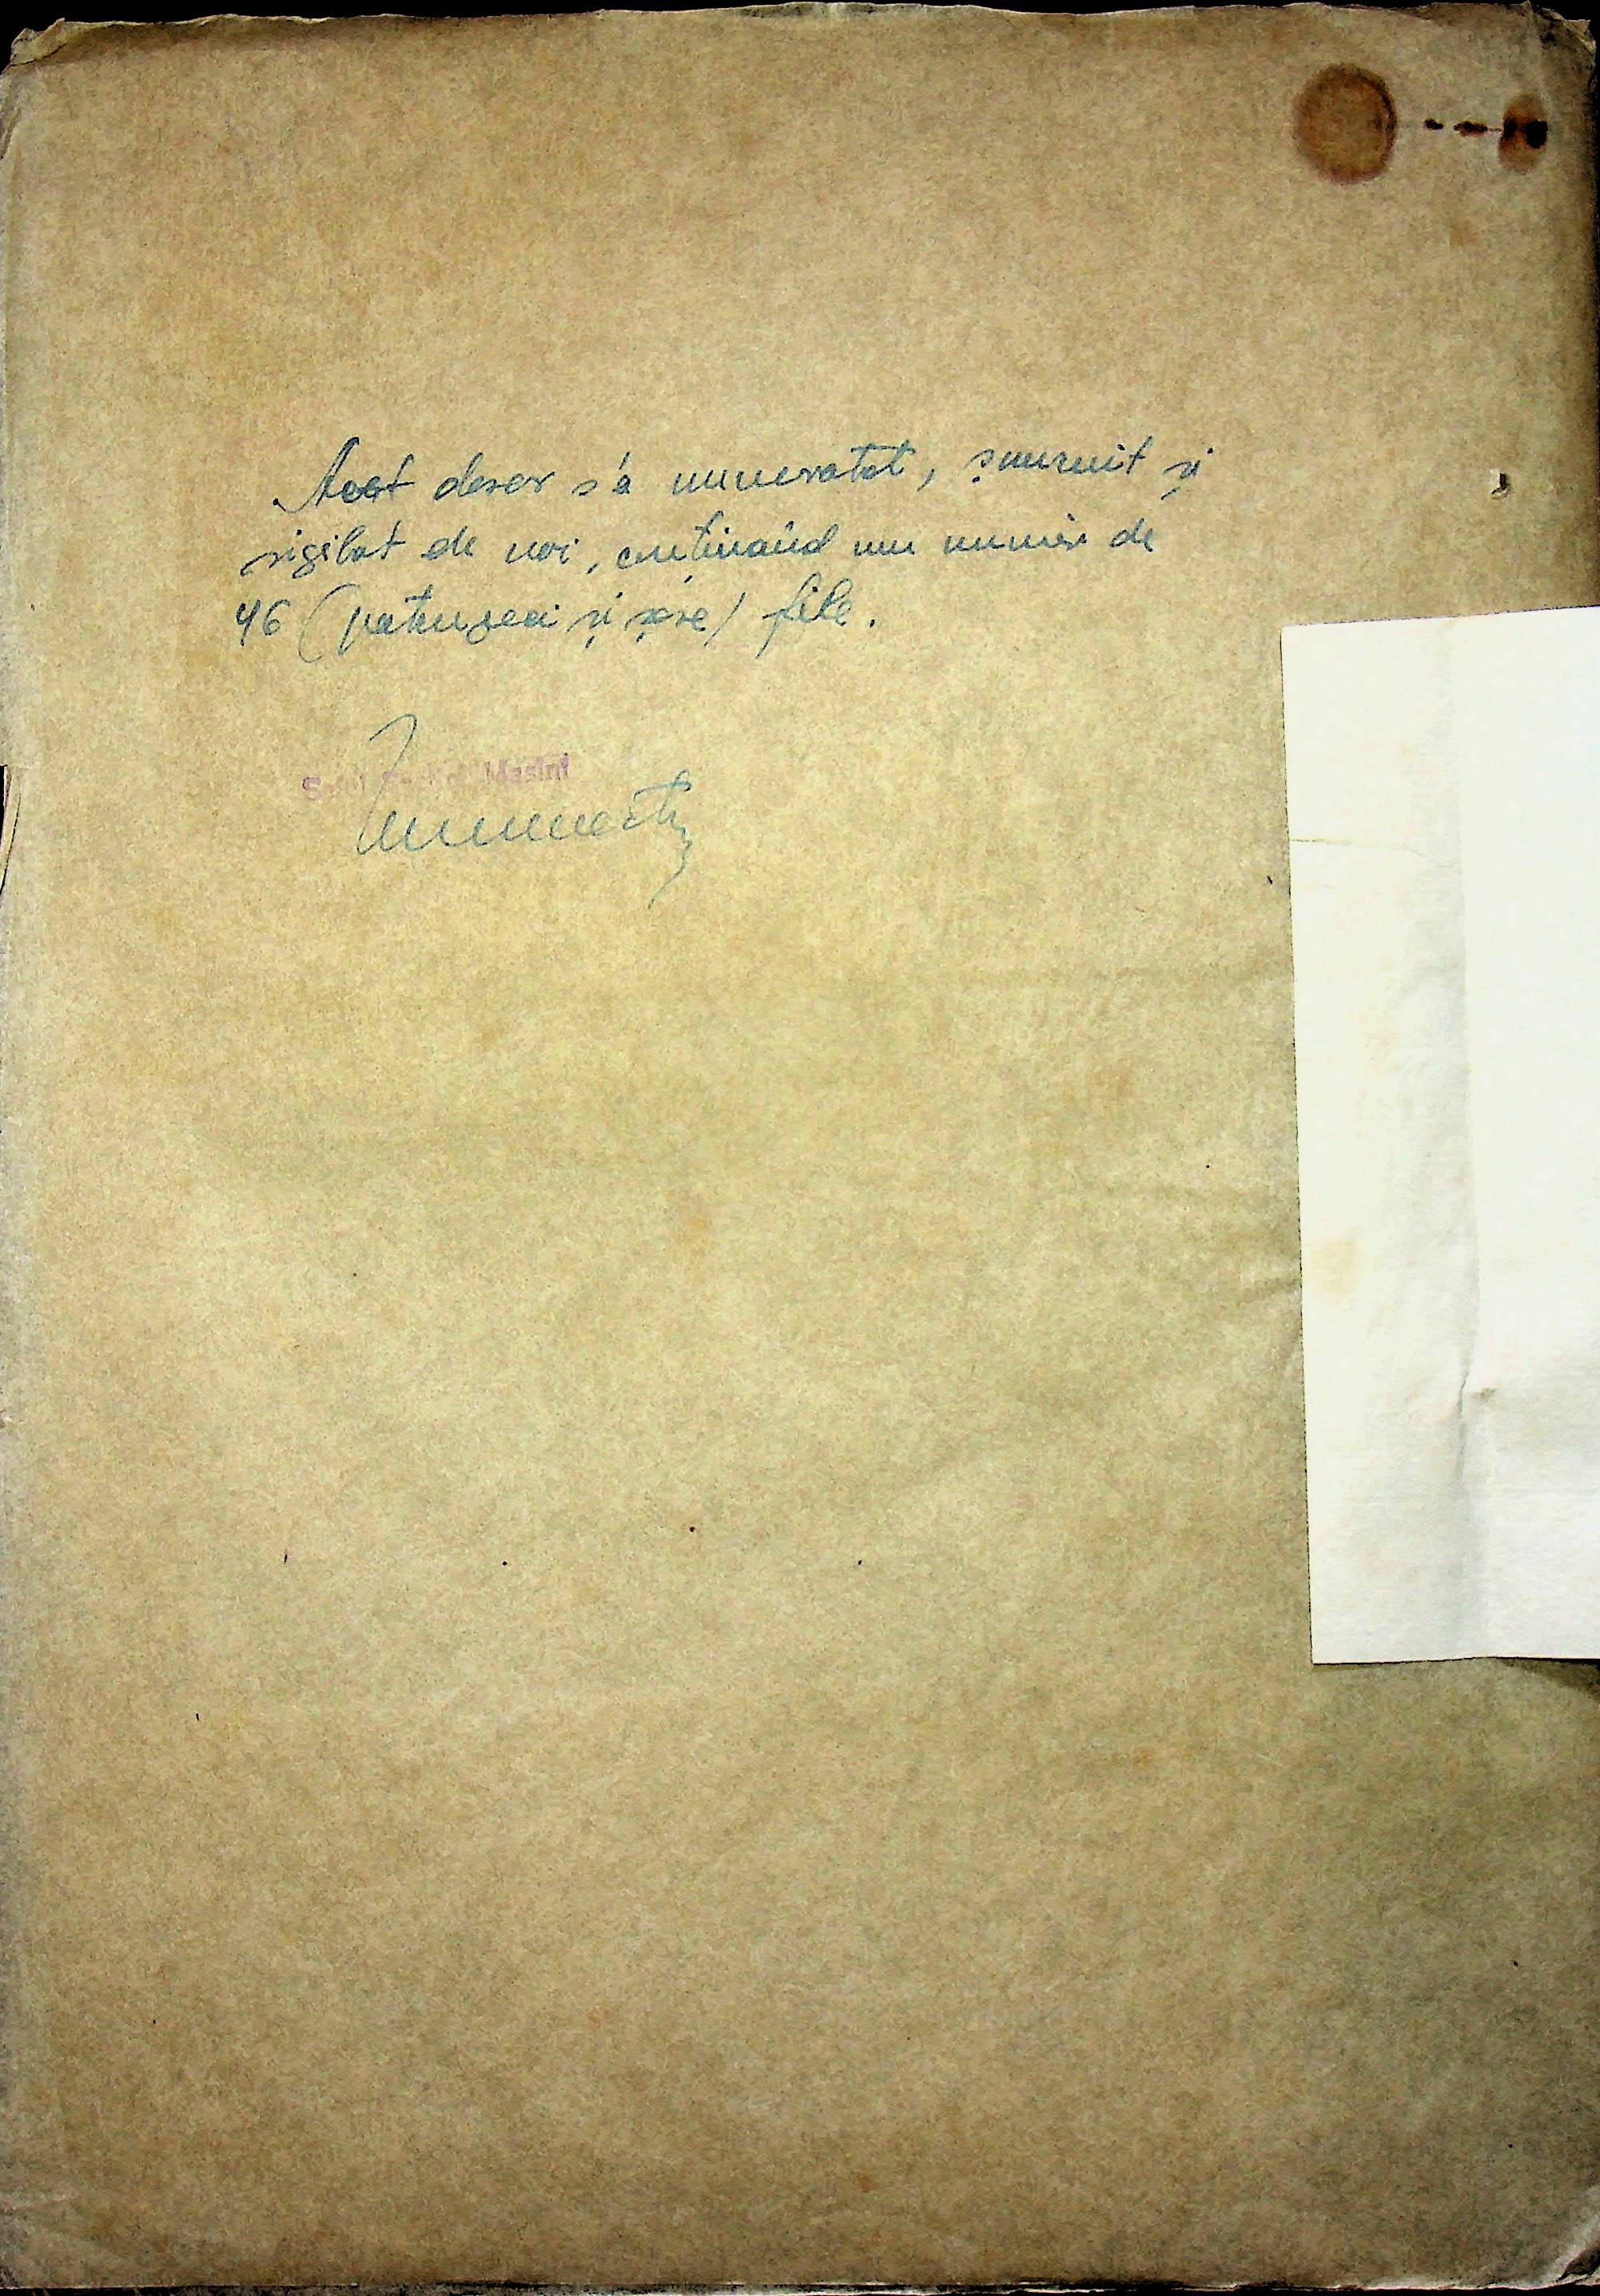 Acest dosar s'a numerotat, șnuruit și
sigilat de noi, conținând un număr de
46 (patruzeci și șase) file.
Masini